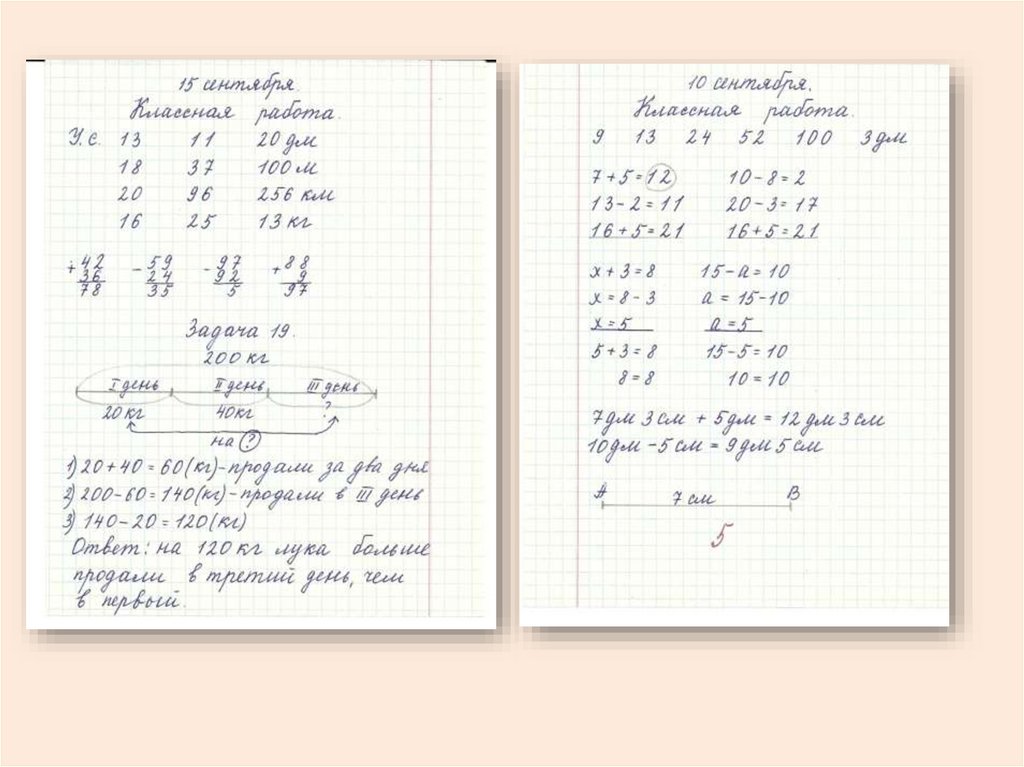 15 сентября.
Классная работа.
У.с. 13 11 20 дм
18 37 100 м
20 96 256 км
16 25 13 кг
+42 -59 -97 +88
36 24 92 9
78 35 5 97
Задача 19.
200 кг
I день II день III день
20 кг 40 кг ?
на ?
1) 20 + 40 = 60 (кг) - продали за два дня
2) 200 - 60 = 140 (кг) - продали в III день
3) 140 - 20 = 120 (кг)
Ответ: на 120 кг лука больше
продали в третий день, чем
в первый.
10 сентября.
Классная работа.
9 13 24 52 100 3 дм
7 + 5 = 12 10 - 8 = 2
13 - 2 = 11 20 - 3 = 17
16 + 5 = 21 16 + 5 = 21
х + 3 = 8 15 - а = 10
х = 8 - 3 а = 15 - 10
х = 5 а = 5
5 + 3 = 8 15 - 5 = 10
8 = 8 10 = 10
7 дм 3 см + 5 дм = 12 дм 3 см
10 дм - 5 см = 9 дм 5 см
А 7 см В
5